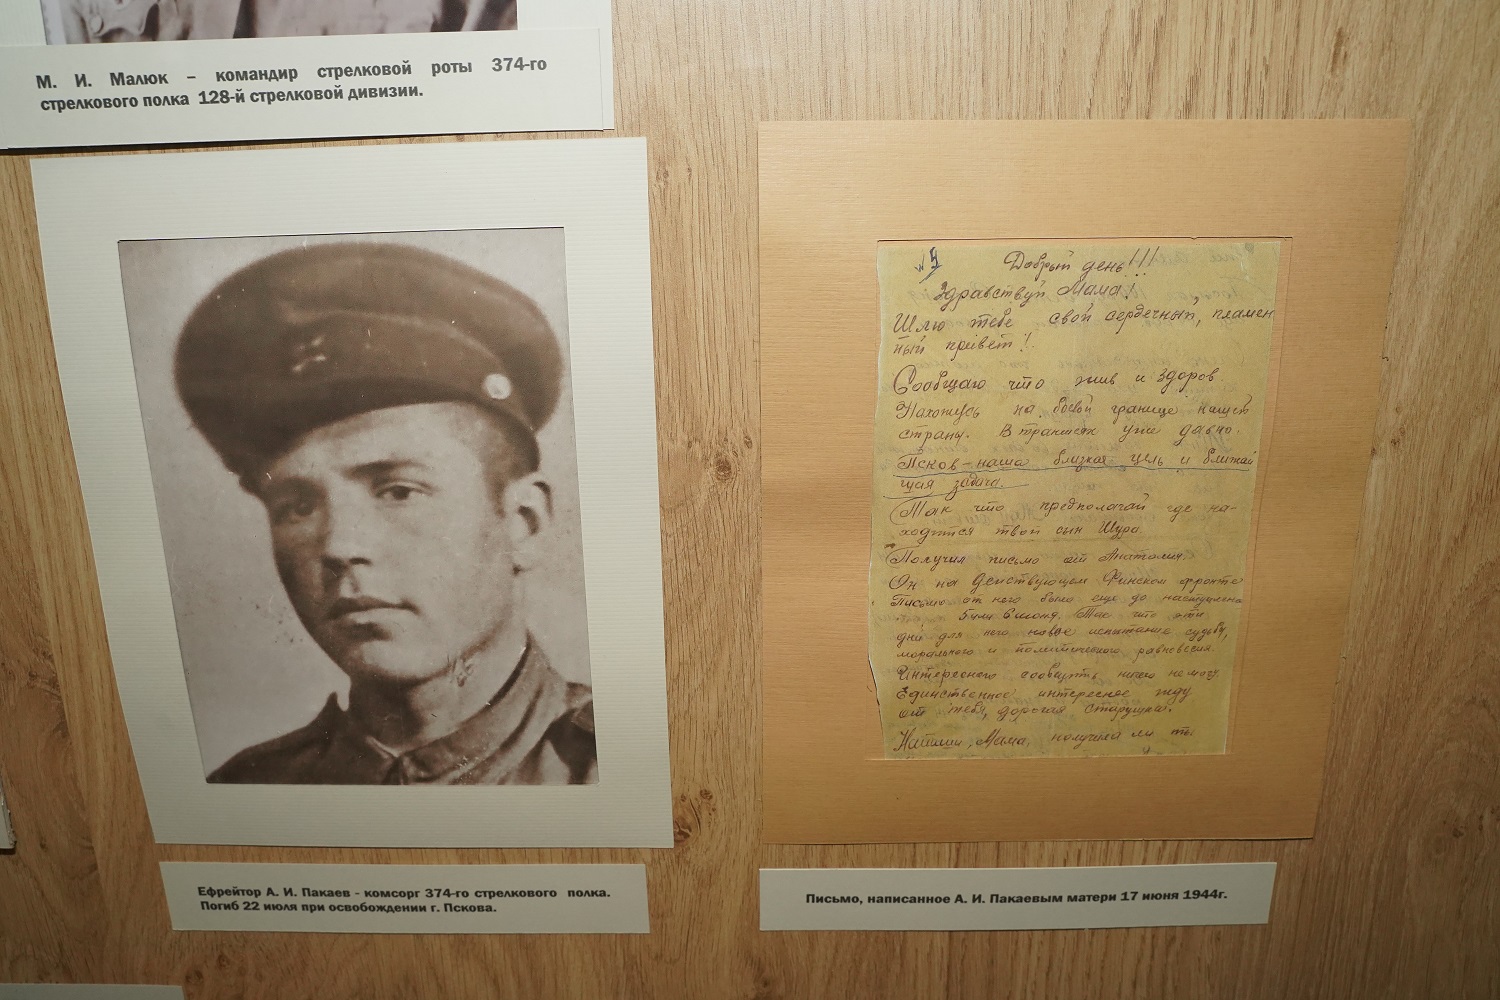 М. И. Малюк – командир стрелковой роты 374-го
стрелкового полка 128-й стрелковой дивизии.
Ефрейтор А. И. Пакаев - комсорг 374-го стрелкового полка.
Погиб 22 июля при освобождении г. Пскова.
Добрый день!!!
Здравствуй Мама!
Шлю тебе свой сердечный, пламен
ный привет!
Сообщаю что жив и здоров.
Нахожусь на боевой границе нашей
страны. В траншеях уже давно.
Псков – наша близкая цель и ближай
шая задача.
Так что предполагай где на-
ходится твой сын Шура.
Получил письмо от Анатолия.
Он на действующем Финском фронте
Письмо от него было еще до наступления
Так что эти
дни для него новое испытание судьбы,
морального и политического равновесия.
Интересного сообщить ничего не могу.
Единственное интересное жду
от тебя, дорогая старушка.
Напиши, Мама, получила ли ты
Письмо, написанное А. И. Пакаевым матери 17 июня 1944г.